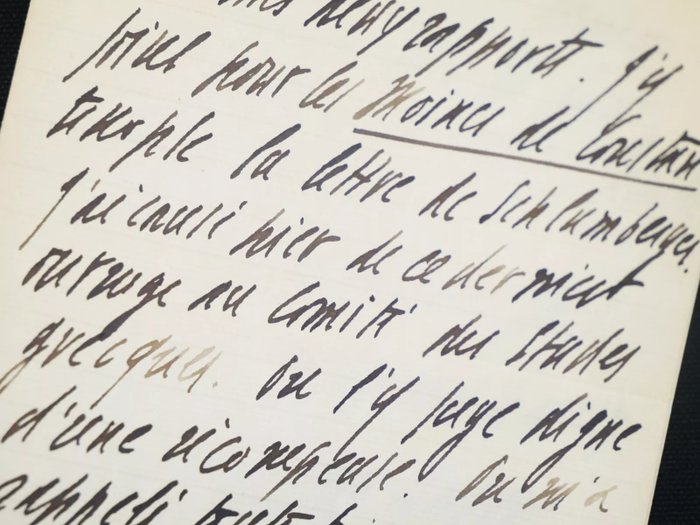 deux rapports. J'y
joins pour les Moines de Constan
tinople la lettre de Schlumberger.
J'ai causé hier de ce dernier
ouvrage au Comité des Etudes
grecques. On l'y juge digne
d'une récompense. On m'a
rappelé